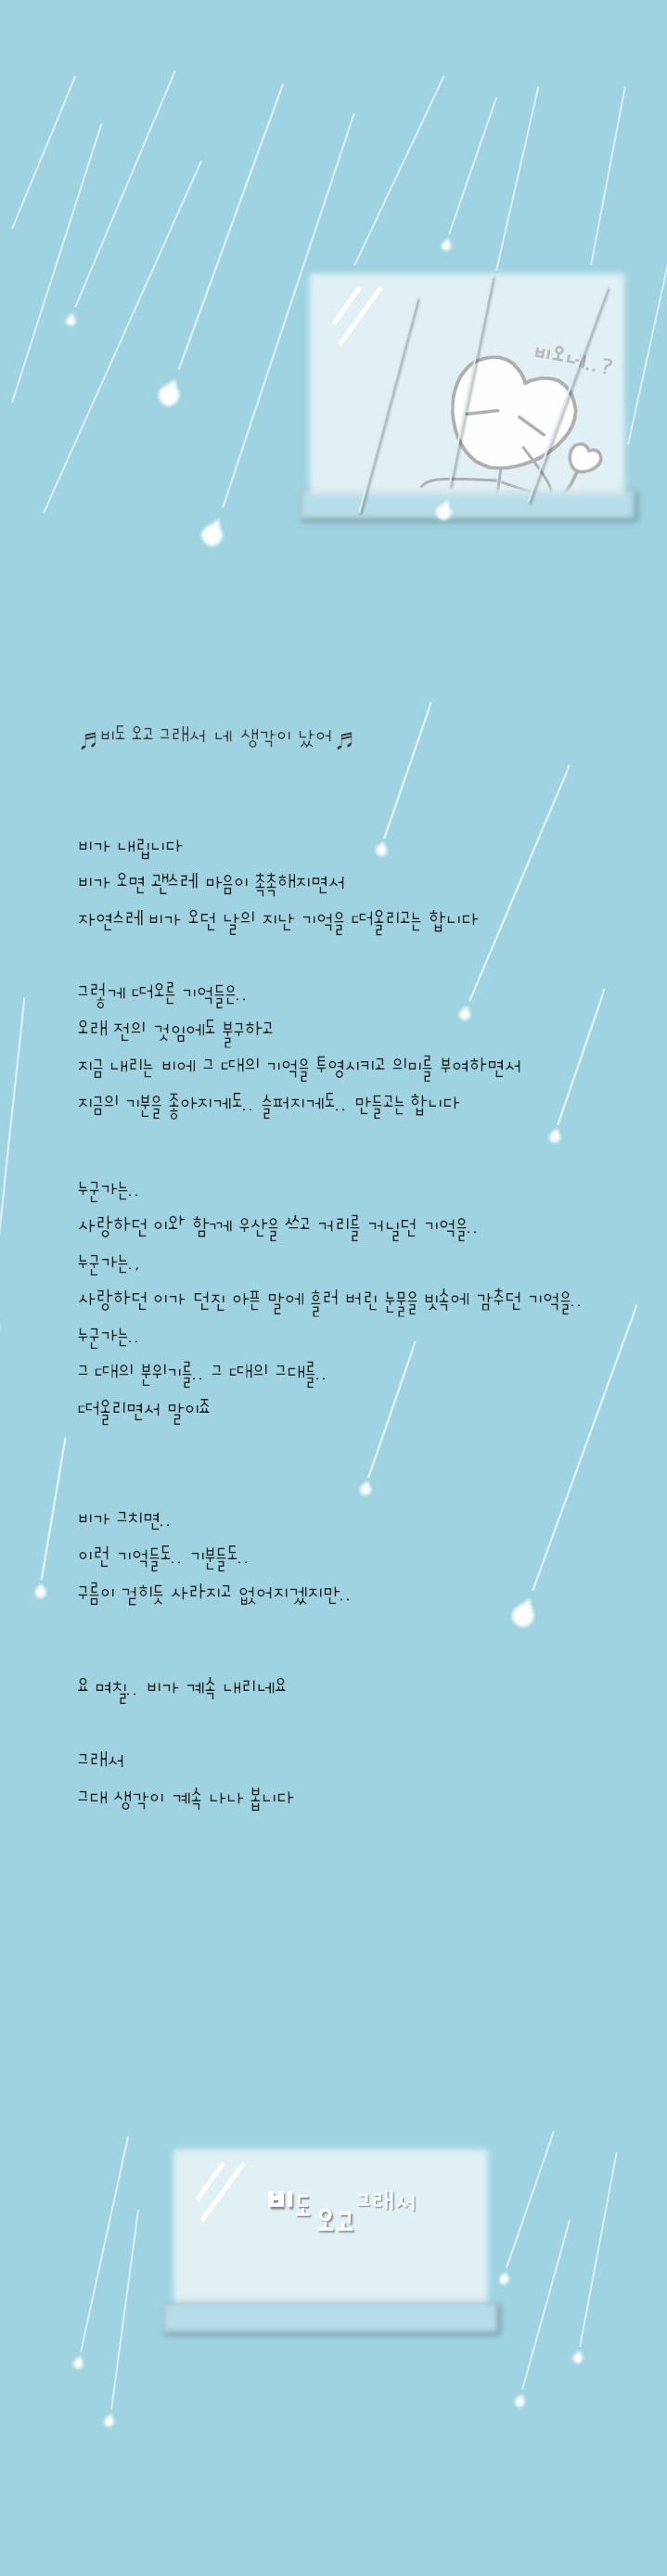 비오네..?
♬비도 오고 그래서 네 생각이 났어♬
비가 내립니다
비가 오면 괜스레 마음이 촉촉해지면서
자연스레 비가 오던 날의 지난 기억을 떠올리고는 합니다
그렇게 떠오른 기억들은..
오래 전의 것임에도 불구하고
지금 내리는 비에 그 때의 기억을 투영시키고 의미를 부여하면서
지금의 기분을 좋아지게도.. 슬퍼지게도.. 만들고는 합니다
누군가는..
사랑하던 이와 함께 우산을 쓰고 거리를 거닐던 기억을..
누군가는.,
사랑하던 이가 던진 아픈 말에 흘러 버린 눈물을 빗속에 감추던 기억을..
누군가는..
그 때의 분위기를.. 그 때의 그대를..
떠올리면서 말이죠
비가 그치면..
이런 기억들도.. 기분들도..
구름이 걷히듯 사라지고 없어지겠지만..
요 며칠.. 비가 계속 내리네요
그래서
그대 생각이 계속 나나 봅니다
비도 오고 그래서